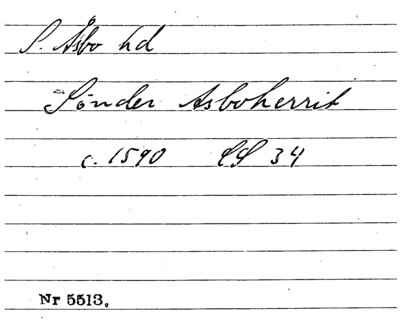 S. Åsbo hd
Sönder Asboherrit
c. 1590 SS 34
Nr 5513.